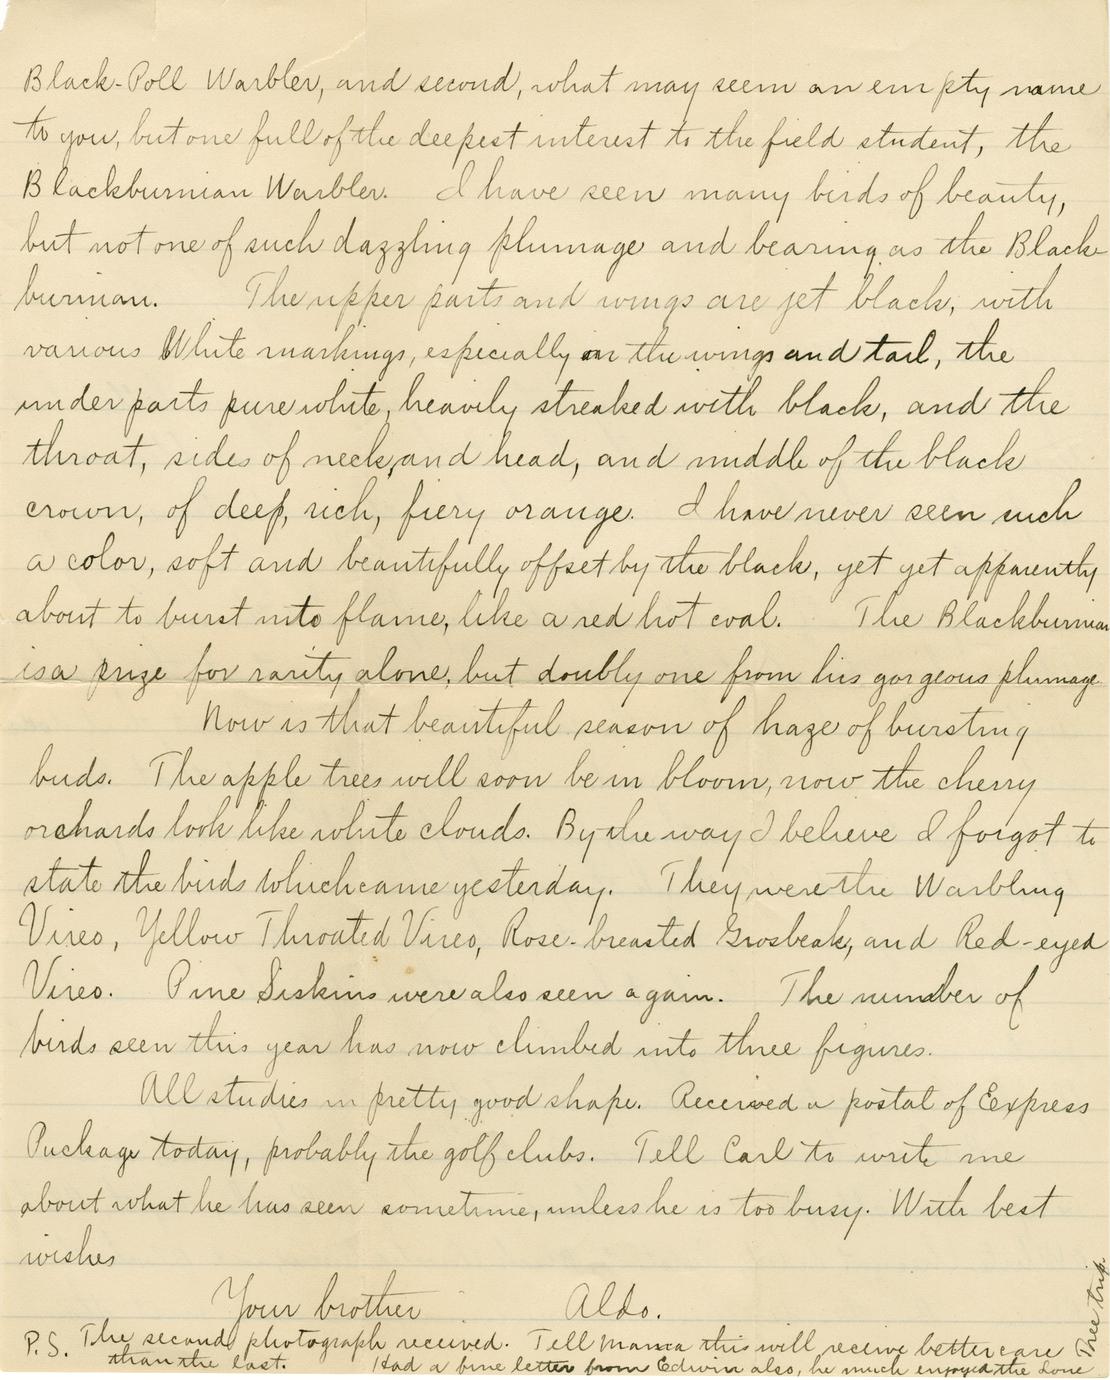 Black-Poll Warbler, and second, what may seem an empty name
to you, but one full of the deepest interest to the field student, the
Blackburnian Warbler. I have seen many birds of beauty,
but not one of such dazzling plumage and bearing as the Black-
burnian. The upper parts and wings are jet black, with
various White markings, especially on the wings and tail, the
under parts pure white, heavily streaked with black, and the
throat, sides of neck, and head, and middle of the black
crown, of deep, rich, fiery orange. I have never seen such
a color, soft and beautifully offset by the black, yet yet apparently
about to burst into flame, like a red hot coal. The Blackburnian
is a prize for rarity alone, but doubly one from his gorgeous plumage
Now is that beautiful season of haze of bursting
buds. The apple trees will soon be in bloom, now the cherry
orchards look like white clouds. By the way I believe I forgot to
state the birds which came yesterday. They were the Warbling
Vireo, Yellow Throated Vireo, Rose-breasted Grosbeak, and Red-eyed
Vireo. Pine Siskins were also seen again. The number of
birds seen this year has now climbed into three figures.
All studies in pretty good shape. Received a postal of Express
Package today, probably the golf clubs. Tell Carl to write me
about what he has seen sometime, unless he is too busy. With best
wishes
Your brother Aldo.
P.S. The second photograph received. Tell Mama this will receive better care
than the last. Had a fine letter from Edwin also, he much enjoyed the Lone
Tree trip